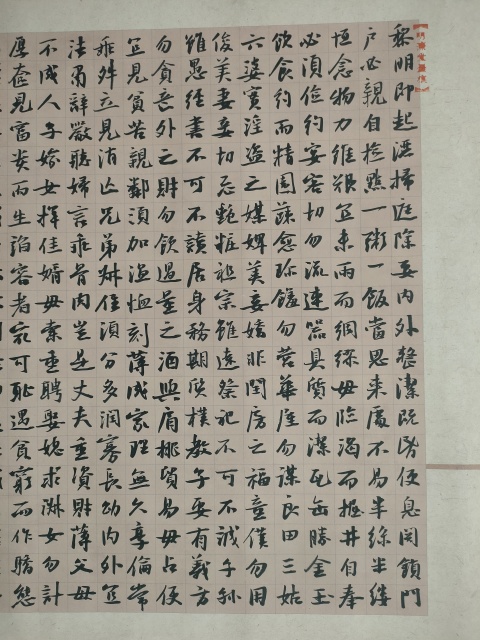 黎明即起洒掃庭除要内外整潔既昏便息関鎖門
户必親自檢點一粥一飯當思来處不易半絲半縷
恒念物力維艱宜未雨而綢繆毋臨渴而掘井自奉
必須儉約宴客切勿流連器具質而潔瓦缶勝金玉
飲食約而精園蔬愈珍饈勿营華屋勿謀良田三姑
六婆實淫盜之媒婢美妾嬌非閨房之福童僕勿用
俊美妻妾切忌艷粧祖宗雖遠祭祀不可不誠子孫
雖愚經書不可不讀居身務期質樸教子要有義方
勿貪意外之財勿飲過量之酒與肩挑貿易毋占便
宜見貧苦親鄰須加温恤刻薄成家理無久享倫常
乖舛立見消亡兄弟叔侄須分多潤寡長幼内外宜
法肅辭嚴聽婦言乖骨肉豈是丈夫重資財薄父母
不成人子嫁女擇佳婿毋索重聘娶媳求淑女勿計
厚奩見富貴而生諂容者最可恥遇貧窮而作驕態